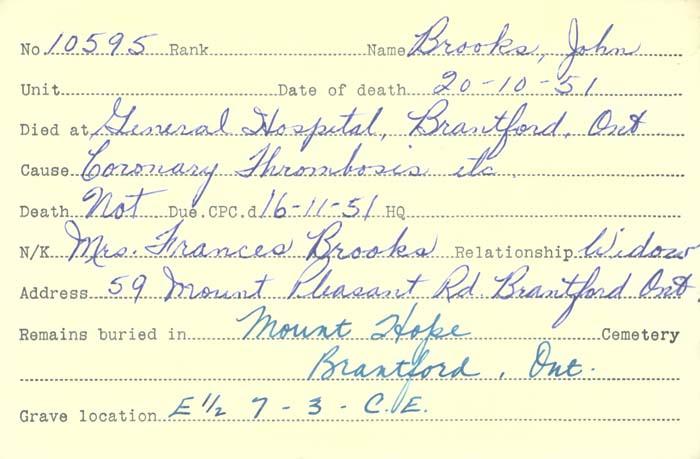 No 10595 Rank Name Brooks, John
Unit Date of death 20-10-51
Died at General Hospital, Brantford, Ont
Cause Coronary Thrombosis etc.
Death Not Due.CPC.d 16-11-51 HQ
N/K Mrs. Frances Brooks Relationship Widow
Address 59 Mount Pleasant Rd. Brantford Ont
Remains buried in Mount Hope Cemetery
Brantford, Ont.
Grave location E 1/2 7 - 3 - C.E.